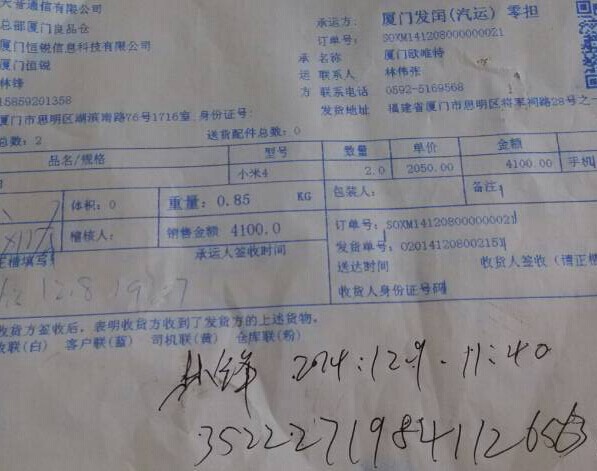 天音通信有限公司
总部厦门良品仓
厦门恒锐信息科技有限公司
厦门恒锐
林锋
15859201358
厦门市思明区湖滨南路76号1716室 身份证号:
总数: 2 送货配件总数: 0
承运方: 厦门发闰(汽运) 零担
订单号: SOXM1412080000000021
承 名称 厦门欧唯特
运 联系人 林伟张
方 联系电话 0592-5169568
发货地址: 福建省厦门市思明区将军祠路28号之一
品名/规格 型号 数量 单价 金额
小米4 2.0 2050.00 4100.00 手机
体积: 0 重量: 0.85 KG 包装人: 备注
稽核人: 销售金额 4100.0 订单号: SOXM1412080000000021
承运人签收时间 发货单号: 02014120800215
正楷填写 送达时间 收货人签收 (请正楷
12.8 收货人身份证号码
收货方签收后, 表明收货方收到了发货方的上述货物。
联(白) 客户联(蓝) 司机联(黄) 仓库联(粉)
林锋 2014.12.9. 11:40
35222719841126563